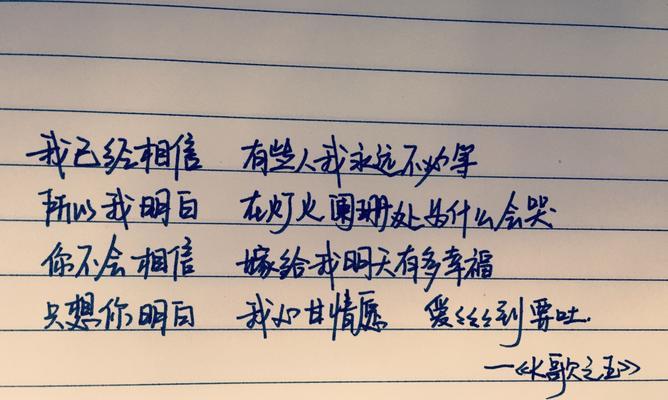 我已经相信 有些人我永远不必等
所以我明白 在灯火阑珊处为什么会哭
你不会相信 嫁给我明天有多幸福
只想你明白 我心甘情愿 爱々々々到要吐.
—《K歌之王》